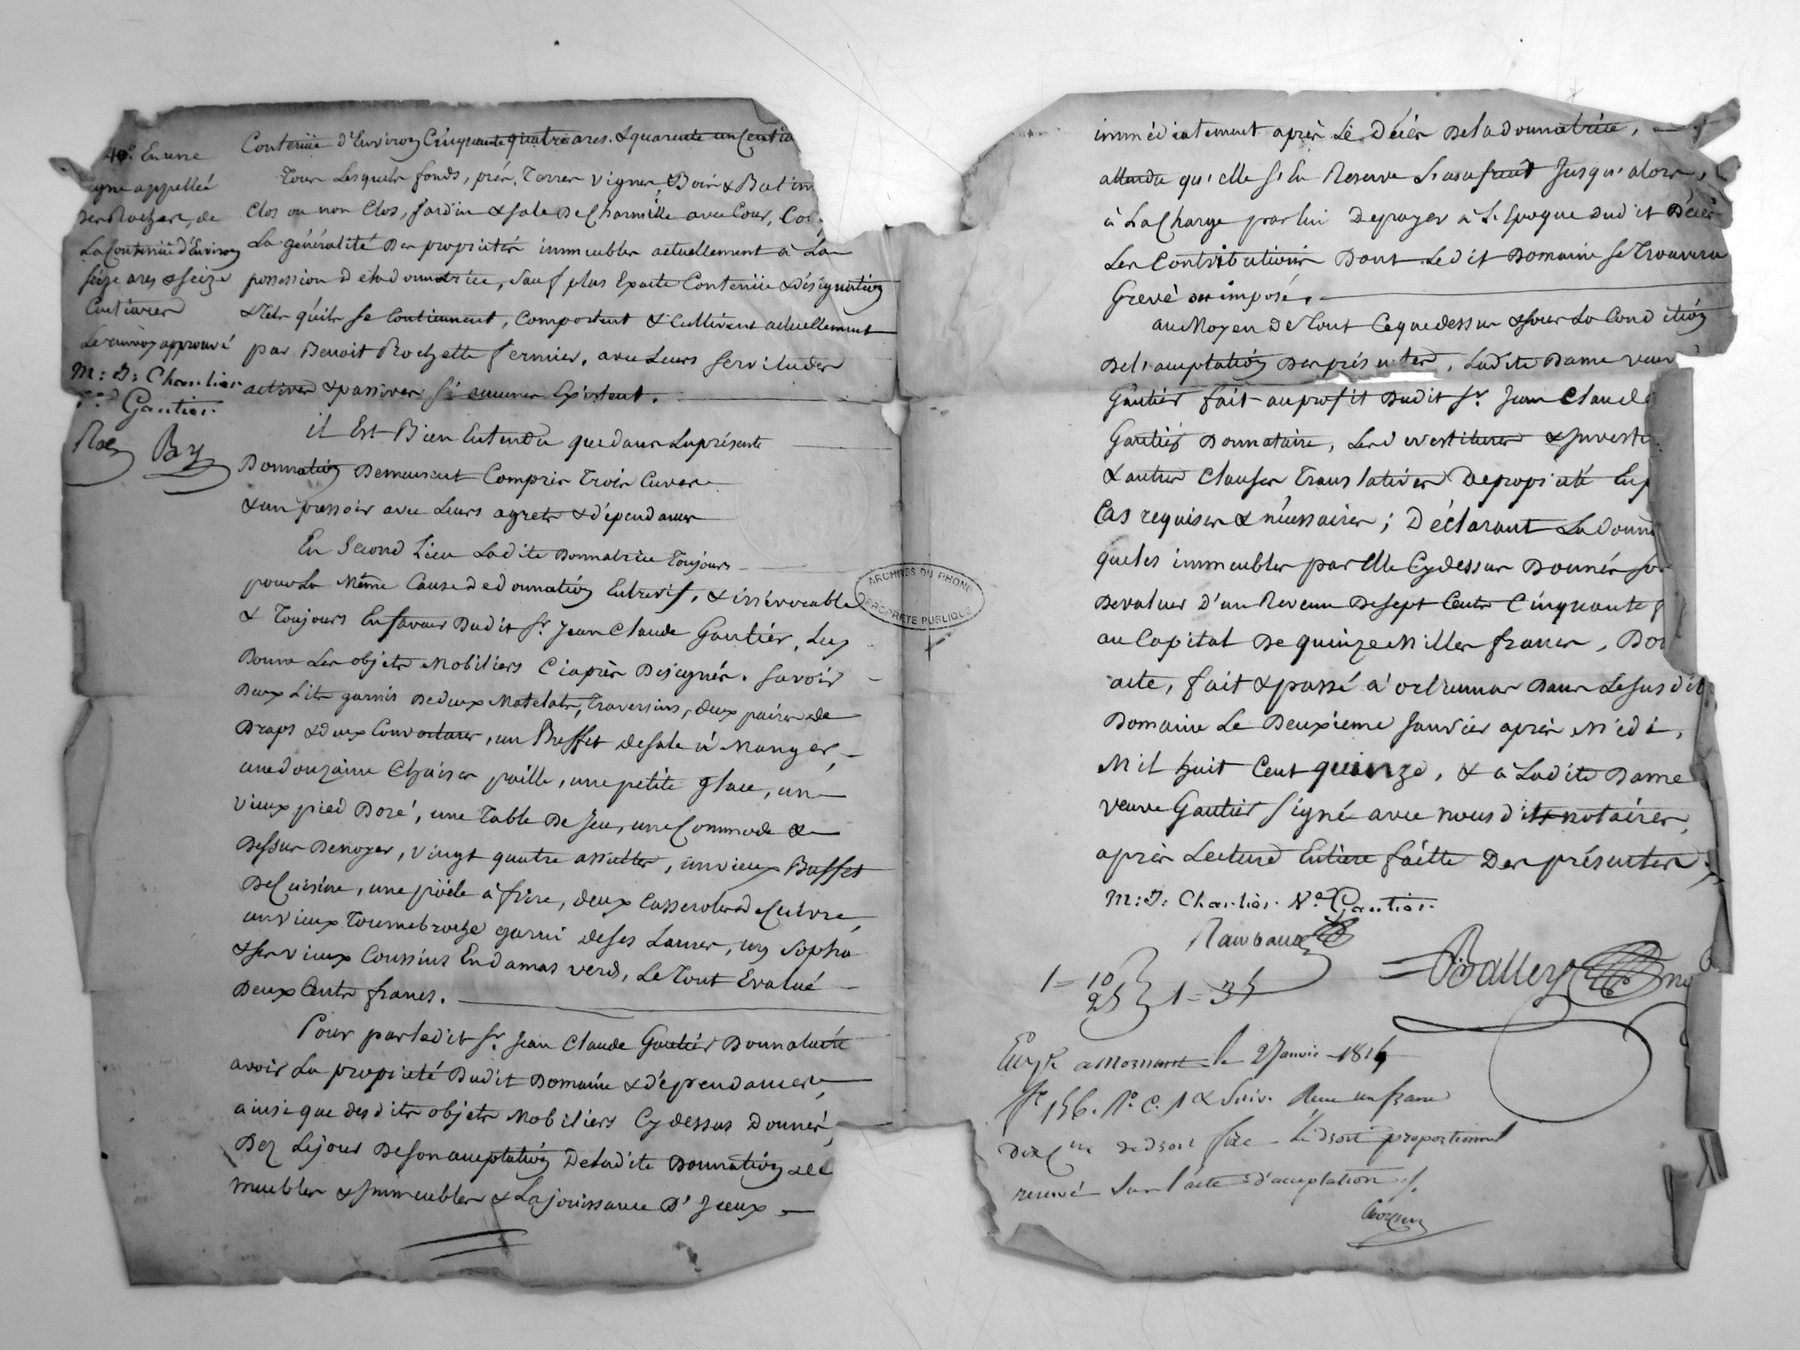 40° En une
vigne appellée
Des Rochers, de
La Contenüe d'Environ
seize ares & seize
Centiares
Le renvoy approuvé
M: J: Charlier
V.e Gautier
Ray
Contenüe d'Environ Cinquante quatre ares & quarante un Centia
Tous Lesquels fonds, prés, Terres Vignes, Bois & Batim
Clos ou non Clos, Jardin & Sale De Charmille avec Cour,
La généralité Des propriétés immeubles actuellement à La
possession de la donnatrice, sauf plus Exacte Contenüe & désignation
& Tels qu'ils se Contiennent, Comportent & Cultivent actuellement
par Benoit Rochette fermier, avec Leurs servitudes
actives & passives si aucunes Existent.
il Est Bien Entendu que dans La présente
Donnation Demeurent Compris Trois Cuves
& un pressoir avec Leurs agrets & dépendances
En Second Lieu Ladite Donnatrice Toujours
pour La Même Cause de donnation Entrevif, & irrévocable
& Toujours En faveur Dudit Sr. Jean Claude Gautier, Luy
Donne Les objets Mobiliers Ciaprès Designés. Savoir
Deux Lits garnis De deux Matelats, Traversins, deux paires de
Draps & deux Couvertures, un Buffet de sale à Manger,
une douzaine Chaises paille, une petite glace, un
Vieux pied Doré, une Table De Jeu, une Commode &
Dessus De noyer, Vingt quatre assiettes, un vieux Buffet
De Cuisine, une poële à frire, deux Casseroles de Cuivre,
un vieux Tournebroche garni de ses Lames, un Sopha
& ses vieux Coussins En damas verd, Le Tout Evalué
Deux Cents francs.
Pour par ledit Sr. Jean Claude Gautier Donnataire
avoir La propriété Dudit Domaine & dépendances,
ainsi que desdits objets Mobiliers Cydessus Donnés,
Dez Le jour De son acceptation De Ladite Donnation des
Meubles & Immeubles & La jouissance D'Iceux
ARCHIVES DU RHONE
PROPRIETE PUBLIQUE
immédiatement après Le Décès De la donnatrice,
attendu qu'elle s'En Reserve L'usufruit Jusqu'alors,
à La Charge par lui De payer à L'Epoque dudit Décès
Les Contributions Dont Ledit Domaine se Trouvera
Grevé ou imposé.
au Moyen de Tout Ce que dessus & sous La Condition
De L'acceptation Des présentes, Ladite Dame veuve
Gautier fait au profit Dudit Sr. Jean Claude
Gautier Donnataire, Les devestitures & Investi
& autres Clauses Translatives De propriété En p
Cas requises & nécessaires; Déclarant La donn
que les immeubles par Elle Cydessus Donnés so
De valeur D'un Revenu De sept Cents Cinquante f
au Capital De quinze Milles francs, Do
acte, fait & passé à orliennas Dans Le susdit
Domaine Le Deuxième Janvier après Midi,
Mil huit Cent quinze, & a Ladite Dame
veuve Gautier Signé avec nous dits notaires,
après Lecture Entière faitte Des présentes.
M: J: Charlier V.e Gautier
Rambaud
Ballery
1 = 10
25 1 = 35
Enr.é a Mornant le 2 Janvier 1815
f.° 156. R.° C. 1 & Suiv. Reçu un franc
dix C.mes de droit fixe. Le droit proportionnel
reservé Sur l'acte d'acceptation